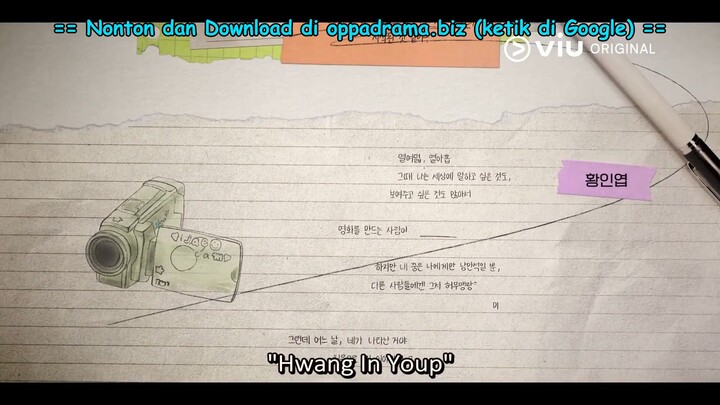 == Nonton dan Download di oppadrama.biz (ketik di Google) ==
viu ORIGINAL
열여덟, 열아홉
그때 나는 세상에 말하고 싶은 것도,
보여주고 싶은 것도 많아서
황인엽
영화를 만드는 사람이
하지만 내 꿈은 나에게만 낭만적일 뿐,
다른 사람들에겐 그저 허무맹랑
그런데 어느 날, 네가 나타난 거야
"Hwang In Youp"